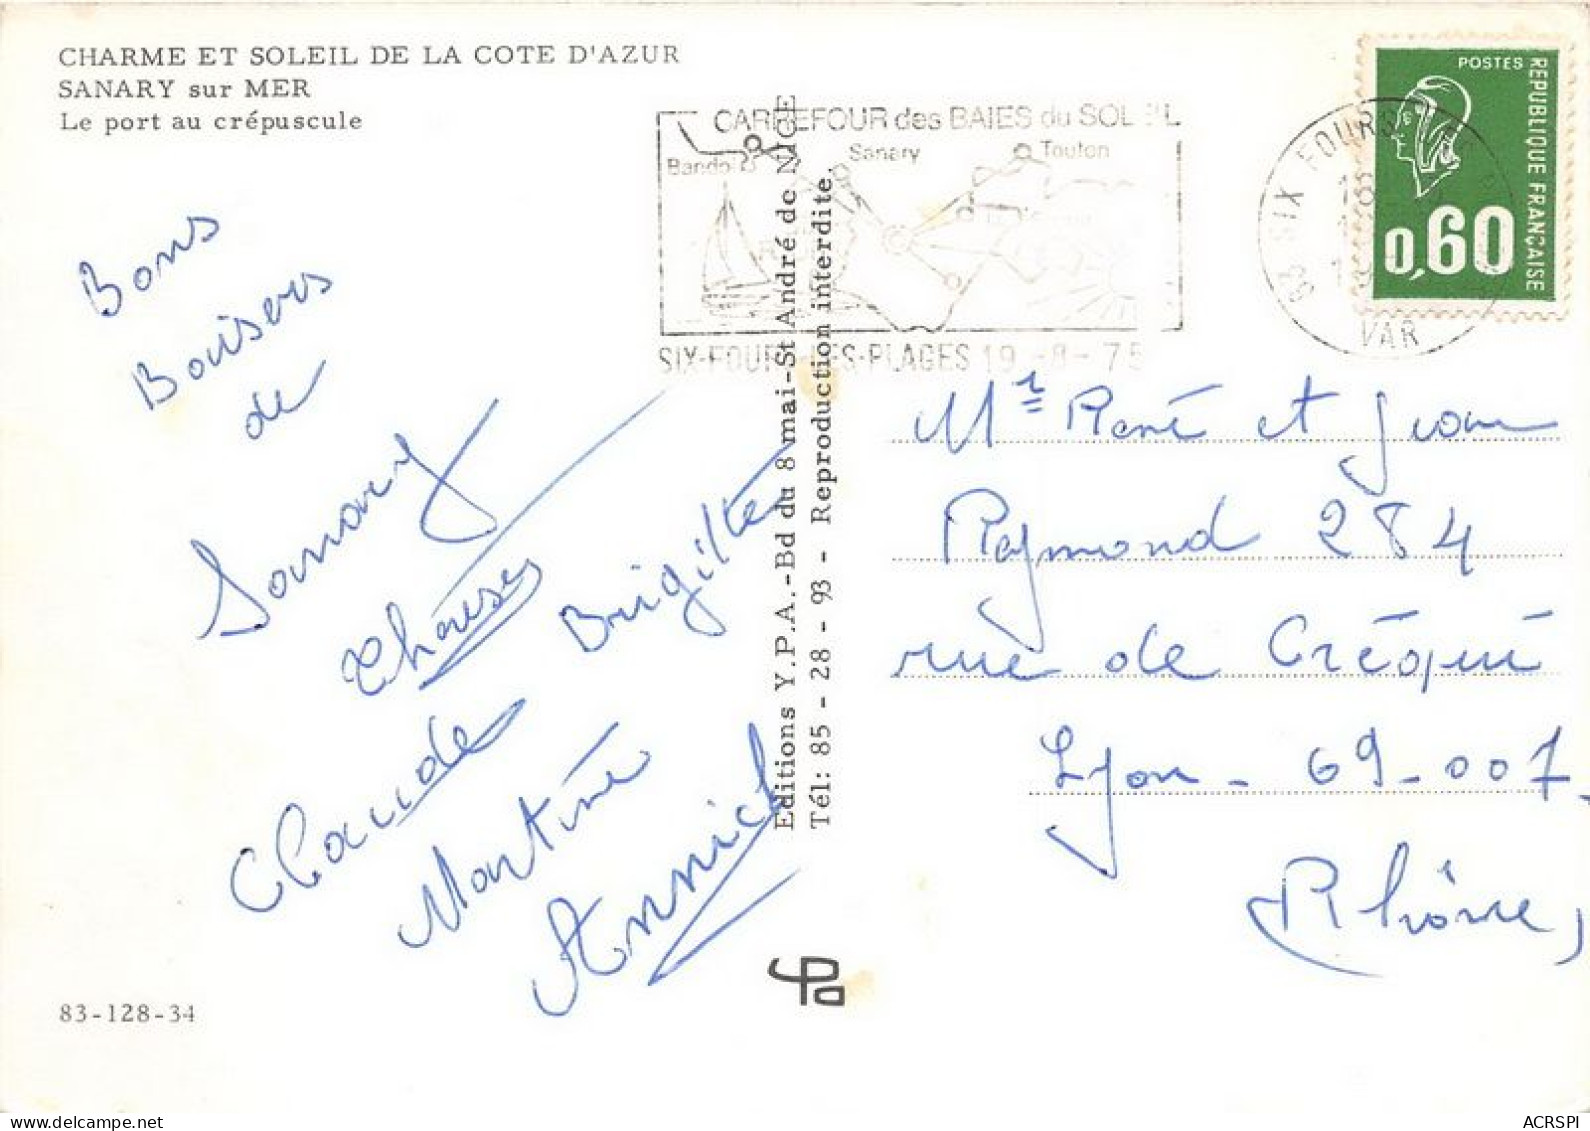 CHARME ET SOLEIL DE LA COTE D'AZUR
SANARY sur MER
Le port au crépuscule
CARREFOUR des BAIES du SOLEIL
Bandol
Sanary
Toulon
SIX-FOURS-LES-PLAGES 19-8-75
83 SIX FOURS
VAR
POSTES
REPUBLIQUE FRANÇAISE
0,60
Bons
Baisers
de
Sanary
Thérèse
Brigitte
Claude
Martine
Annick
Editions Y.P.A.-Bd du 8 mai-St André de NICE
Tél: 85 - 28 - 93 - Reproduction interdite.
Mr René et Jean
Raymond 284
rue de Créqui
Lyon - 69-007
Rhône
83-128-34
delcampe.net
ACRSPI